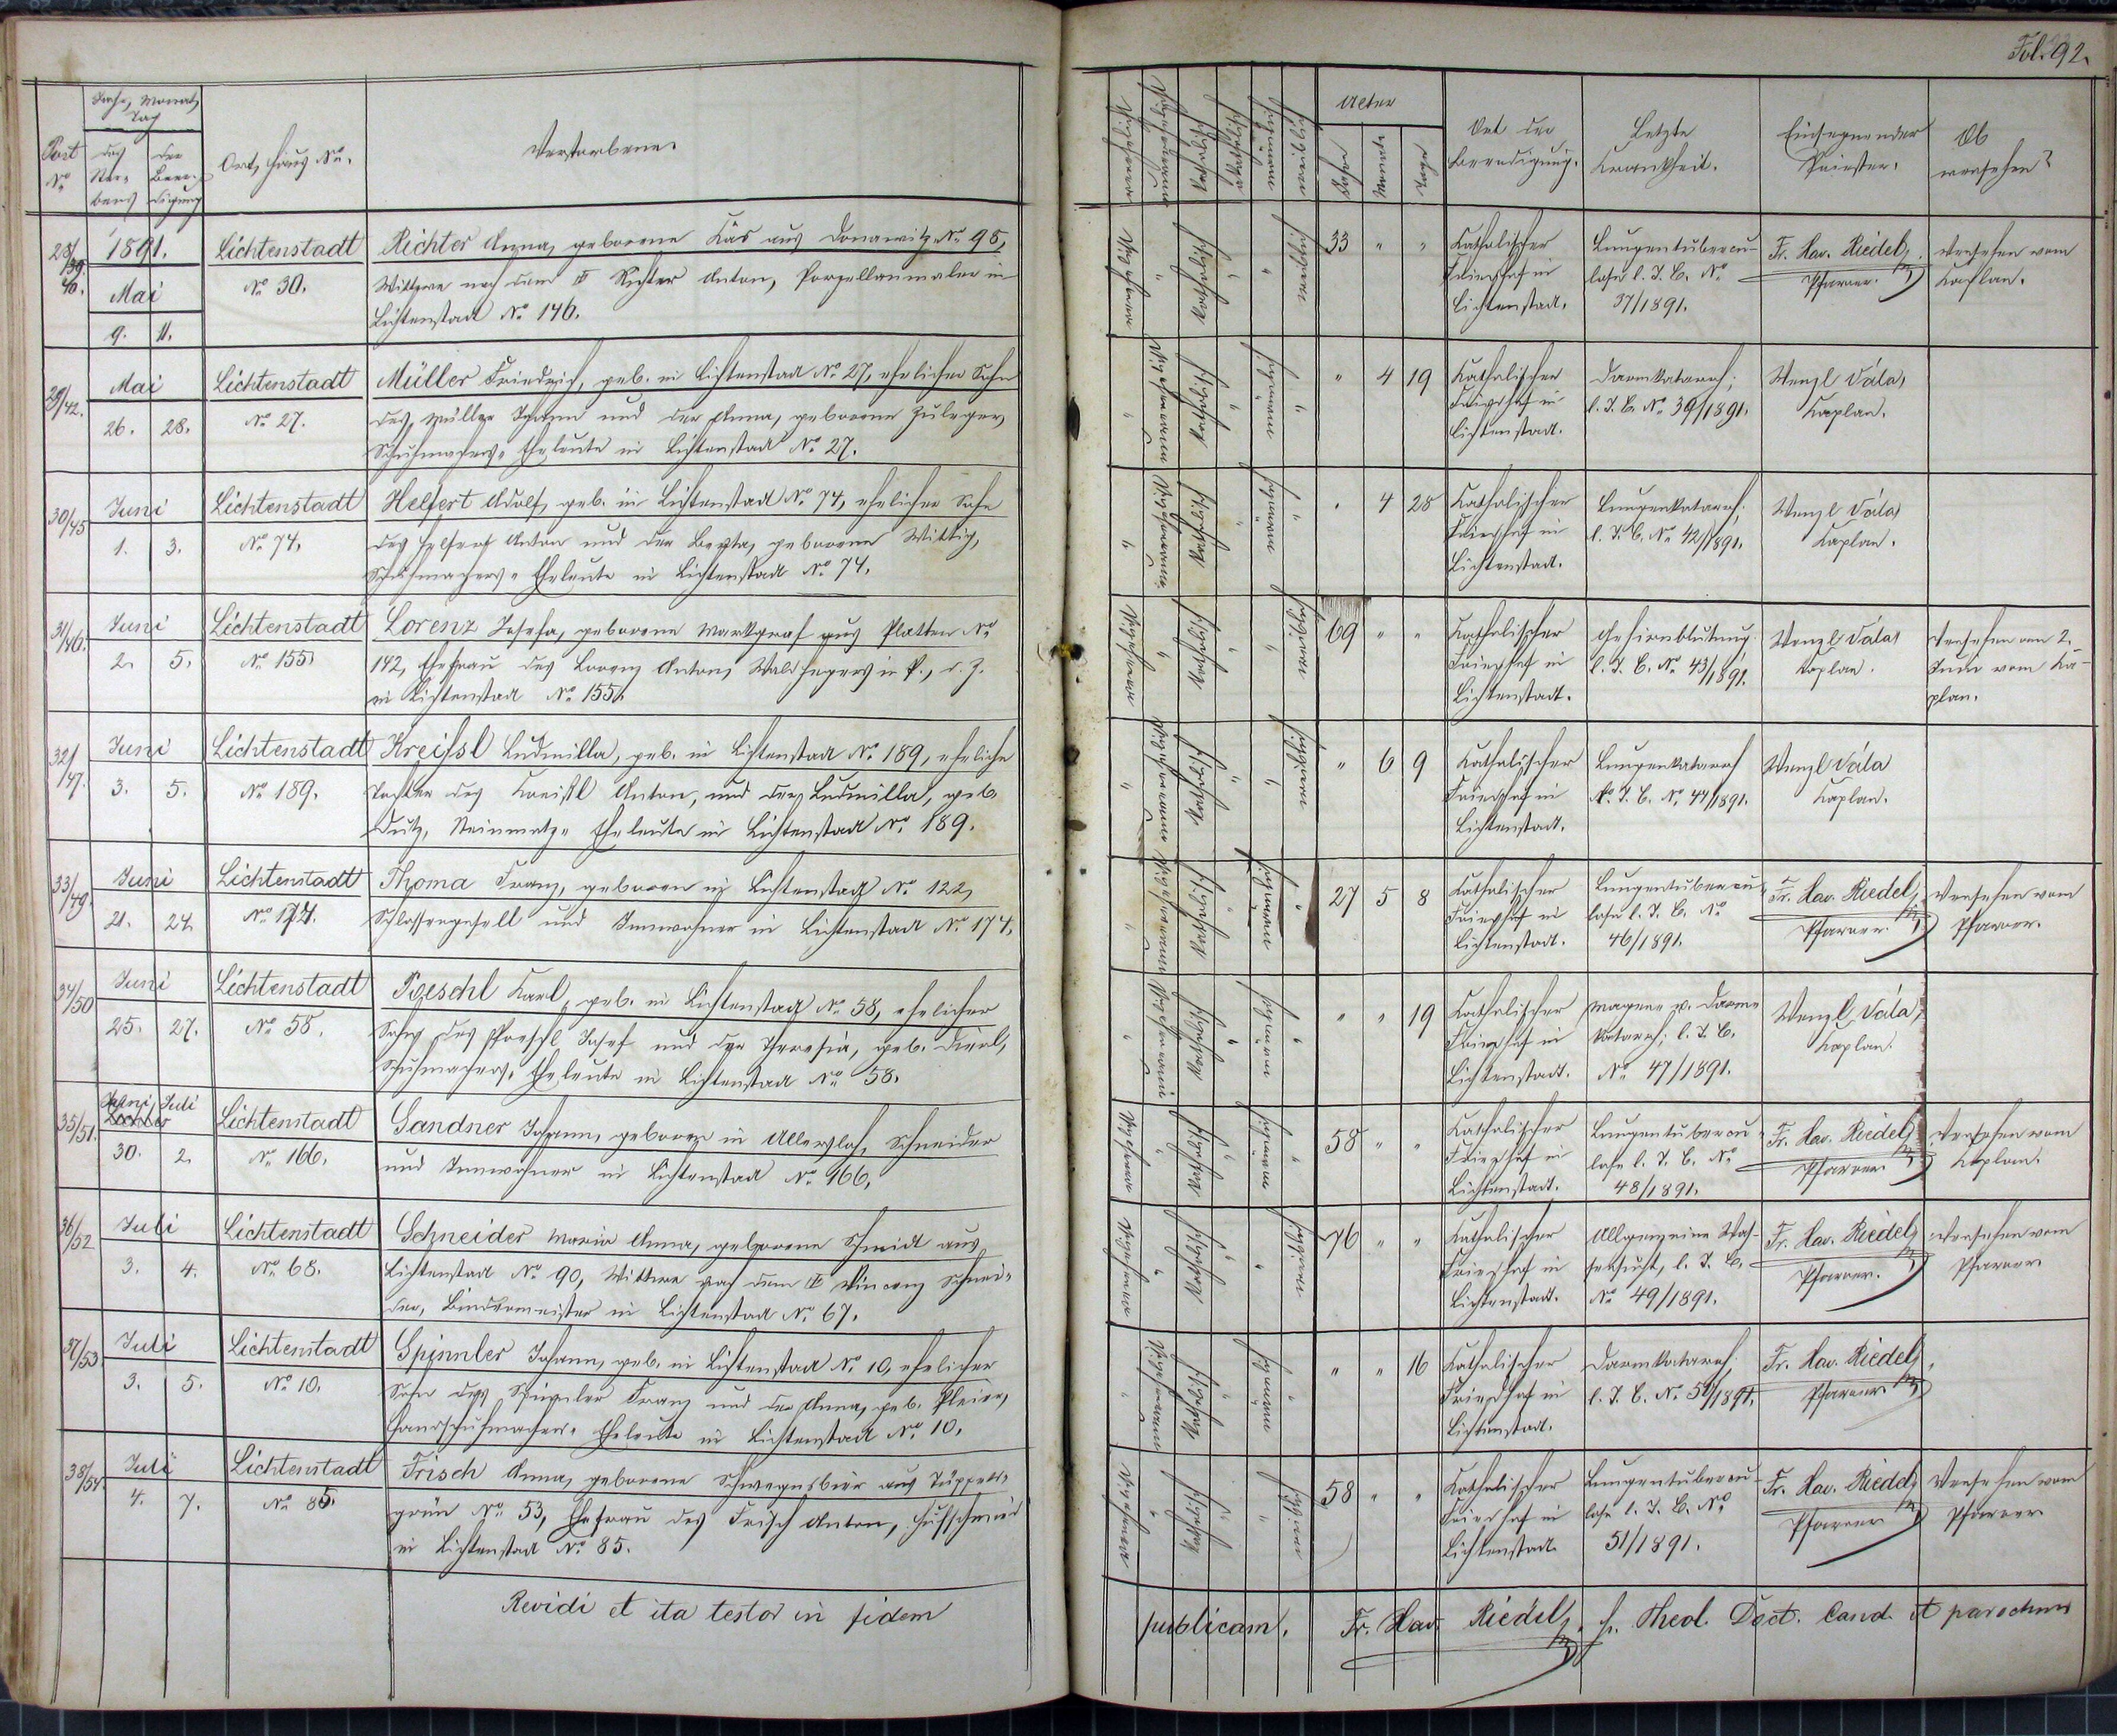 Fol. 92.
Post No.
Jahr, Monat, Tag
des Ster-
bens
der Beer-
digung
Ort, Haus No.
Verstorbene.
Katholisch
Akatholisch
Alter
Jahre
Monate
Tage
Ort der
Beerdigung.
Letzte
Krankheit.
Einsegnender
Priester.
Ob
versehen?
28/39.
40.
1891.
Mai
9. 11.
Lichtenstadt
No. 30.
Richter Anna, geborene Käs aus Donawitz No. 95,
Wittwe nach dem Richter Anton, Porzellanmaler in
Lichtenstadt No. 146.
Katholisch
weiblich
33 " "
Katholischer
Friedhof in
Lichtenstadt.
Lungentubercu-
lose l. T. B. No.
37/1891.
Fr. Xav. Riedel,
Pfarrer.
Versehen vom
Kaplan.
29/42.
Mai
26. 28.
Lichtenstadt
No. 27.
Müller Friedrich, geb. in Lichtenstadt No. 27, ehelicher Sohn
des Müller Johann und der Anna, geborene Zuleger,
Schuhmachers-Eheleute in Lichtenstadt No. 27.
Katholisch
" 4 19
Katholischer
Friedhof in
Lichtenstadt.
Darmkatarrh;
l. T. B. No. 39/1891.
Wenzl Vála,
Kaplan.
30/45
Juni
1. 3.
Lichtenstadt
No. 74.
Helfert Adolf, geb. in Lichtenstadt No. 74, ehelicher Sohn
des Helfert Anton und der Berta, geborene Wittig,
Schuhmachers-Eheleute in Lichtenstadt No. 74.
Katholisch
" 4 28
Katholischer
Friedhof in
Lichtenstadt.
Lungenkatarrh;
l. T. B. No. 42/1891.
Wenzl Vála,
Kaplan.
31/46.
Juni
2. 5.
Lichtenstadt
No. 155.
Lorenz Josefa, geborene Markgraf aus Platten No.
142, Ehefrau des Lorenz Anton, Waldhegers in P., d. Z.
in Lichtenstadt No. 155.
Katholisch
weiblich
69 " "
Katholischer
Friedhof in
Lichtenstadt.
Gehirnblutung
l. T. B. No. 43/1891.
Wenzl Vála,
Kaplan.
Versehen am 2.
Juni vom Ka-
plan.
32/47.
Juni
3. 5.
Lichtenstadt
No. 189.
Kreißl Ludmilla, geb. in Lichtenstadt No. 189, eheliche
Tochter des Kreißl Anton, und der Ludmilla, geb.
Dutz, Steinmetz-Eheleute in Lichtenstadt No. 189.
Katholisch
weiblich
" 6 9
Katholischer
Friedhof in
Lichtenstadt.
Lungenkatarrh
l. T. B. No. 44/1891.
Wenzl Vála
Kaplan.
33/49.
Juni
21. 24.
Lichtenstadt
No. 174.
Thoma Franz, geboren in Lichtenstadt No. 122,
Schlossergesell und Innwohner in Lichtenstadt No. 174.
Katholisch
27 5 8
Katholischer
Friedhof in
Lichtenstadt.
Lungentubercu-
lose l. T. B. No.
46/1891.
Fr. Xav. Riedel,
Pfarrer.
Versehen vom
Pfarrer.
34/50
Juni
25. 27.
Lichtenstadt
No. 58.
Poeschl Karl, geb. in Lichtenstadt No. 58, ehelicher
Sohn des Poeschl Josef und der Theresia, geb. Dierl,
Schuhmachers-Eheleute in Lichtenstadt No. 58.
Katholisch
" " 19
Katholischer
Friedhof in
Lichtenstadt.
Magen- u. Darm-
katarrh; l. T. B.
No. 47/1891.
Wenzl Vála,
Kaplan.
35/51.
Juni, Juli
30. 2.
Lichtenstadt
No. 166.
Sandner Johann, geboren in Allerslas, Schneider
und Innwohner in Lichtenstadt No. 166.
Katholisch
58 " "
Katholischer
Friedhof in
Lichtenstadt.
Lungentubercu-
lose l. T. B. No.
48/1891.
Fr. Xav. Riedel,
Pfarrer.
Versehen vom
Kaplan.
36/52
Juli
3. 4.
Lichtenstadt
No. 68.
Schneider Maria Anna, geborene Schmidt aus
Lichtenstadt No. 90, Wittwe nach dem Vincenz Schnei-
der, Bindermeister in Lichtenstadt No. 67.
Katholisch
weiblich
76 " "
Katholischer
Friedhof in
Lichtenstadt.
Allgemeine Was-
sersucht, l. T. B.
No. 49/1891.
Fr. Xav. Riedel,
Pfarrer.
Versehen vom
Pfarrer
37/53.
Juli
3. 5.
Lichtenstadt
No. 10.
Spinnler Johann, geb. in Lichtenstadt No. 10, ehelicher
Sohn des Spinnler Franz und der Anna, geb. Pleier,
Handschuhmachers-Eheleute in Lichtenstadt No. 10.
Katholisch
" " 16
Katholischer
Friedhof in
Lichtenstadt.
Darmkatarrh
l. T. B. No. 50/1891.
Fr. Xav. Riedel,
Pfarrer
38/54.
Juli
4. 7.
Lichtenstadt
No. 85.
Frisch Anna, geborene Schwegnsbier aus Tüppels-
grün No. 53, Ehefrau des Frisch Anton, Hufschmied
in Lichtenstadt No. 85.
Katholisch
58 " "
Katholischer
Friedhof in
Lichtenstadt.
Lungentubercu-
lose l. T. B. No.
51/1891.
Fr. Xav. Riedel,
Pfarrer
Versehen vom
Pfarrer
Revidi et ita testor in fidem
publicam. Fr. Xav. Riedel, Theol. Doct. Cand. et parochus